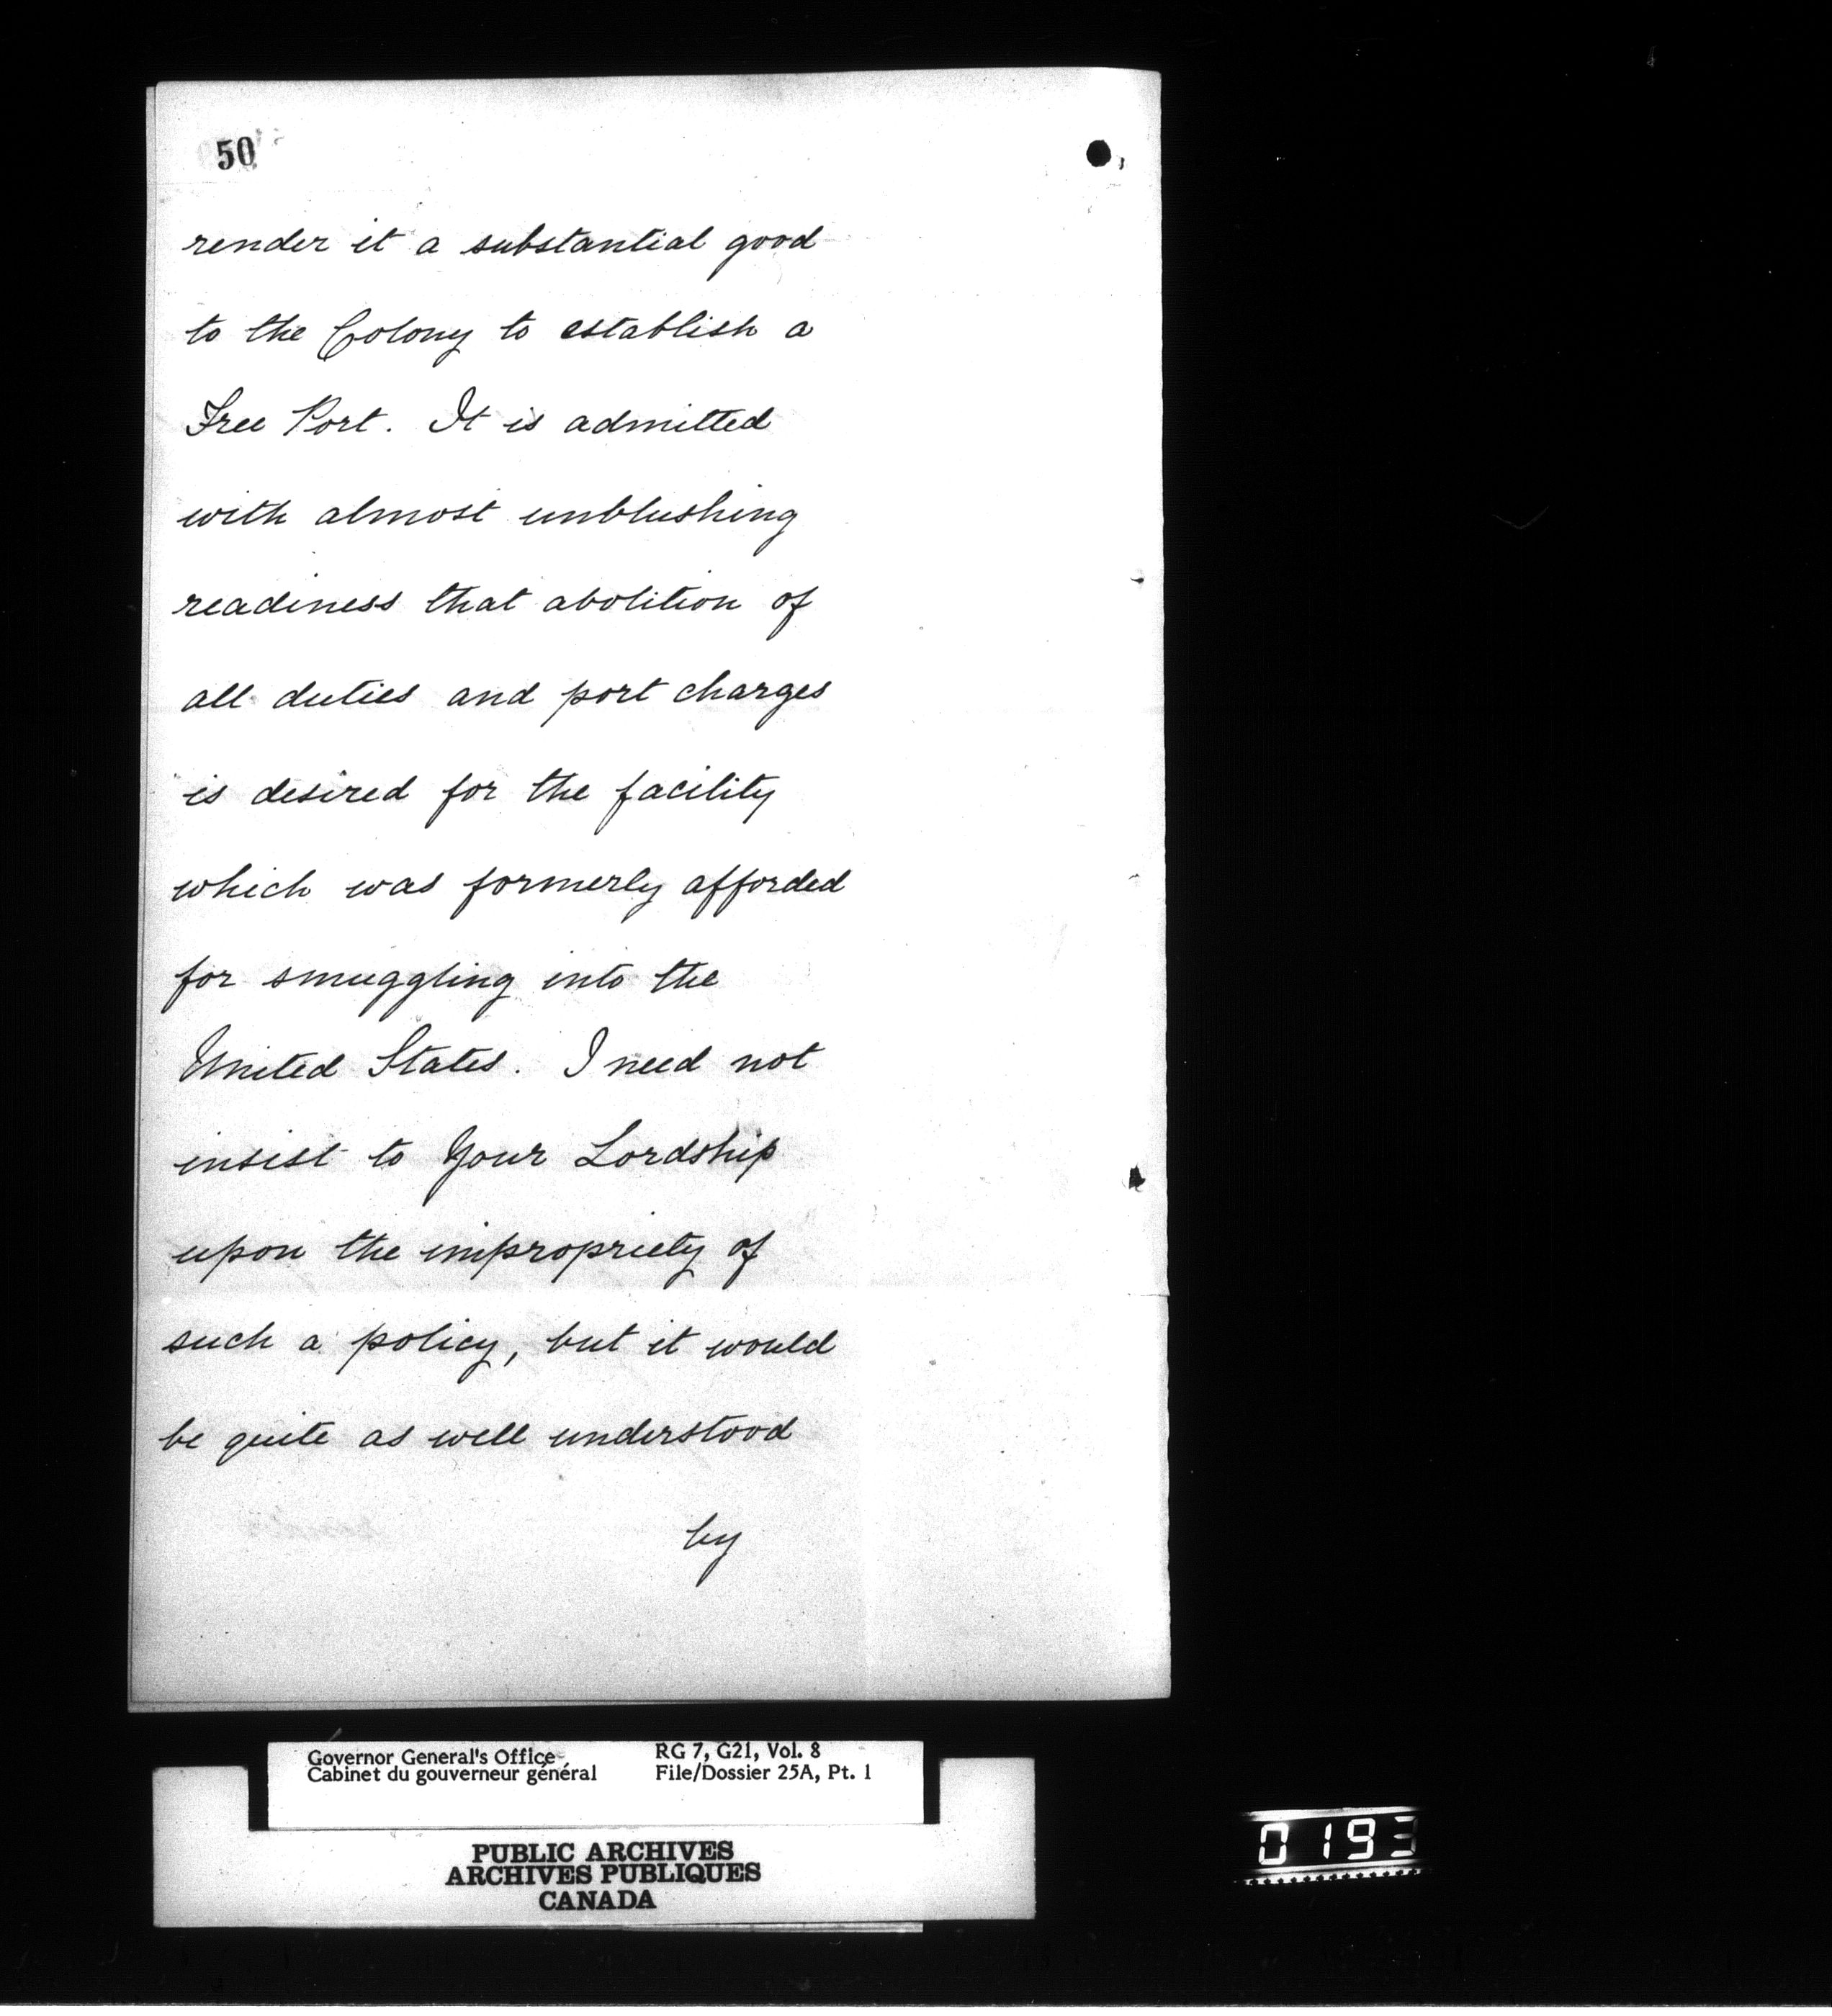 50
render it a substantial good
to the Colony to establish a
Free Port. It is admitted
with almost unblushing
readiness that abolition of
all duties and port charges
is desired for the facility
which was formerly afforded
for smuggling into the
United States. I need not
insist to Your Lordship
upon the impropriety of
such a policy, but it would
be quite as well understood
by
Governor General's Office
Cabinet du gouverneur général
RG 7, G21, Vol. 8
File/Dossier 25A, Pt. 1
PUBLIC ARCHIVES
ARCHIVES PUBLIQUES
CANADA
0193